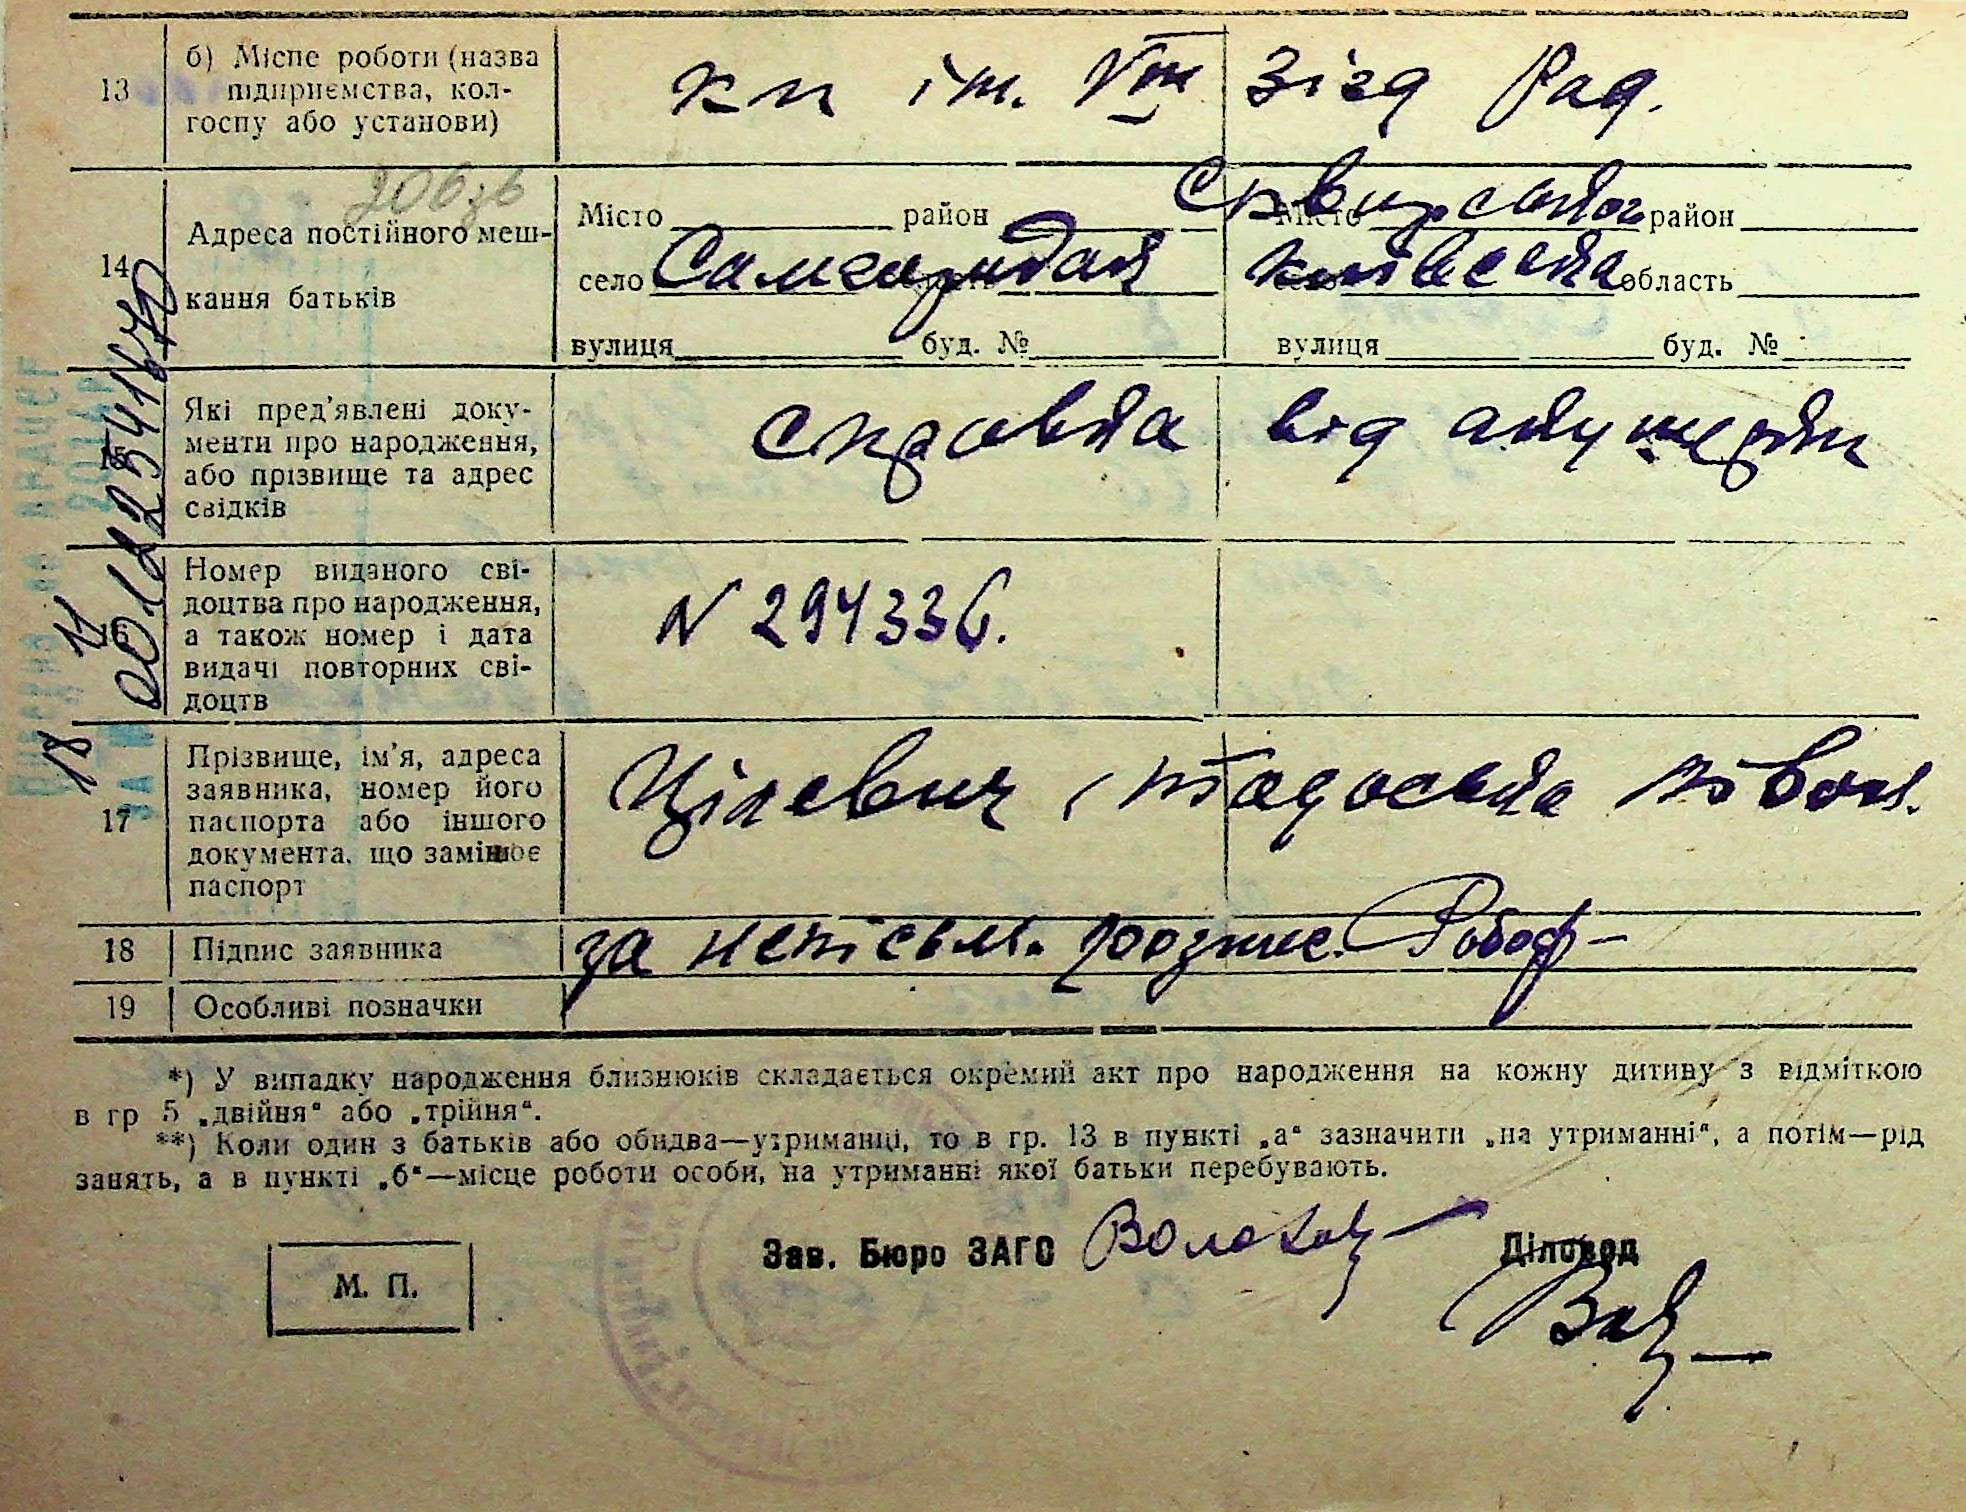 13 б) Місце роботи (назва підприємства, колгоспу або установи) кп ім. VIII зізд Рад.
14 Адреса постійного мешкання батьків
Місто район Місто Сквирський район
село Самгородок Київська область
вулиця буд. № вулиця буд. №
15 Які пред'явлені документи про народження, або прізвище та адрес свідків
справка від акушерки
16 Номер виданого свідоцтва про народження, а також номер і дата видачі повторних свідоцтв
N 294336.
17 Прізвище, ім'я, адреса заявника, номер його паспорта або іншого документа, що замінює паспорт
Цілевич,
18 Підпис заявника за неписьм. розпис.
19 Особливі позначки
*) У випадку народження близнюків складається окремий акт про народження на кожну дитину з відміткою
в гр 5 „двійня“ або „трійня“.
**) Коли один з батьків або обидва—утриманці, то в гр. 13 в пункті „а“ зазначити „на утриманні“, а потім—рід
занять, а в пункті „б“—місце роботи особи, на утриманні якої батьки перебувають.
Зав. Бюро ЗАГС Діловод
М. П.